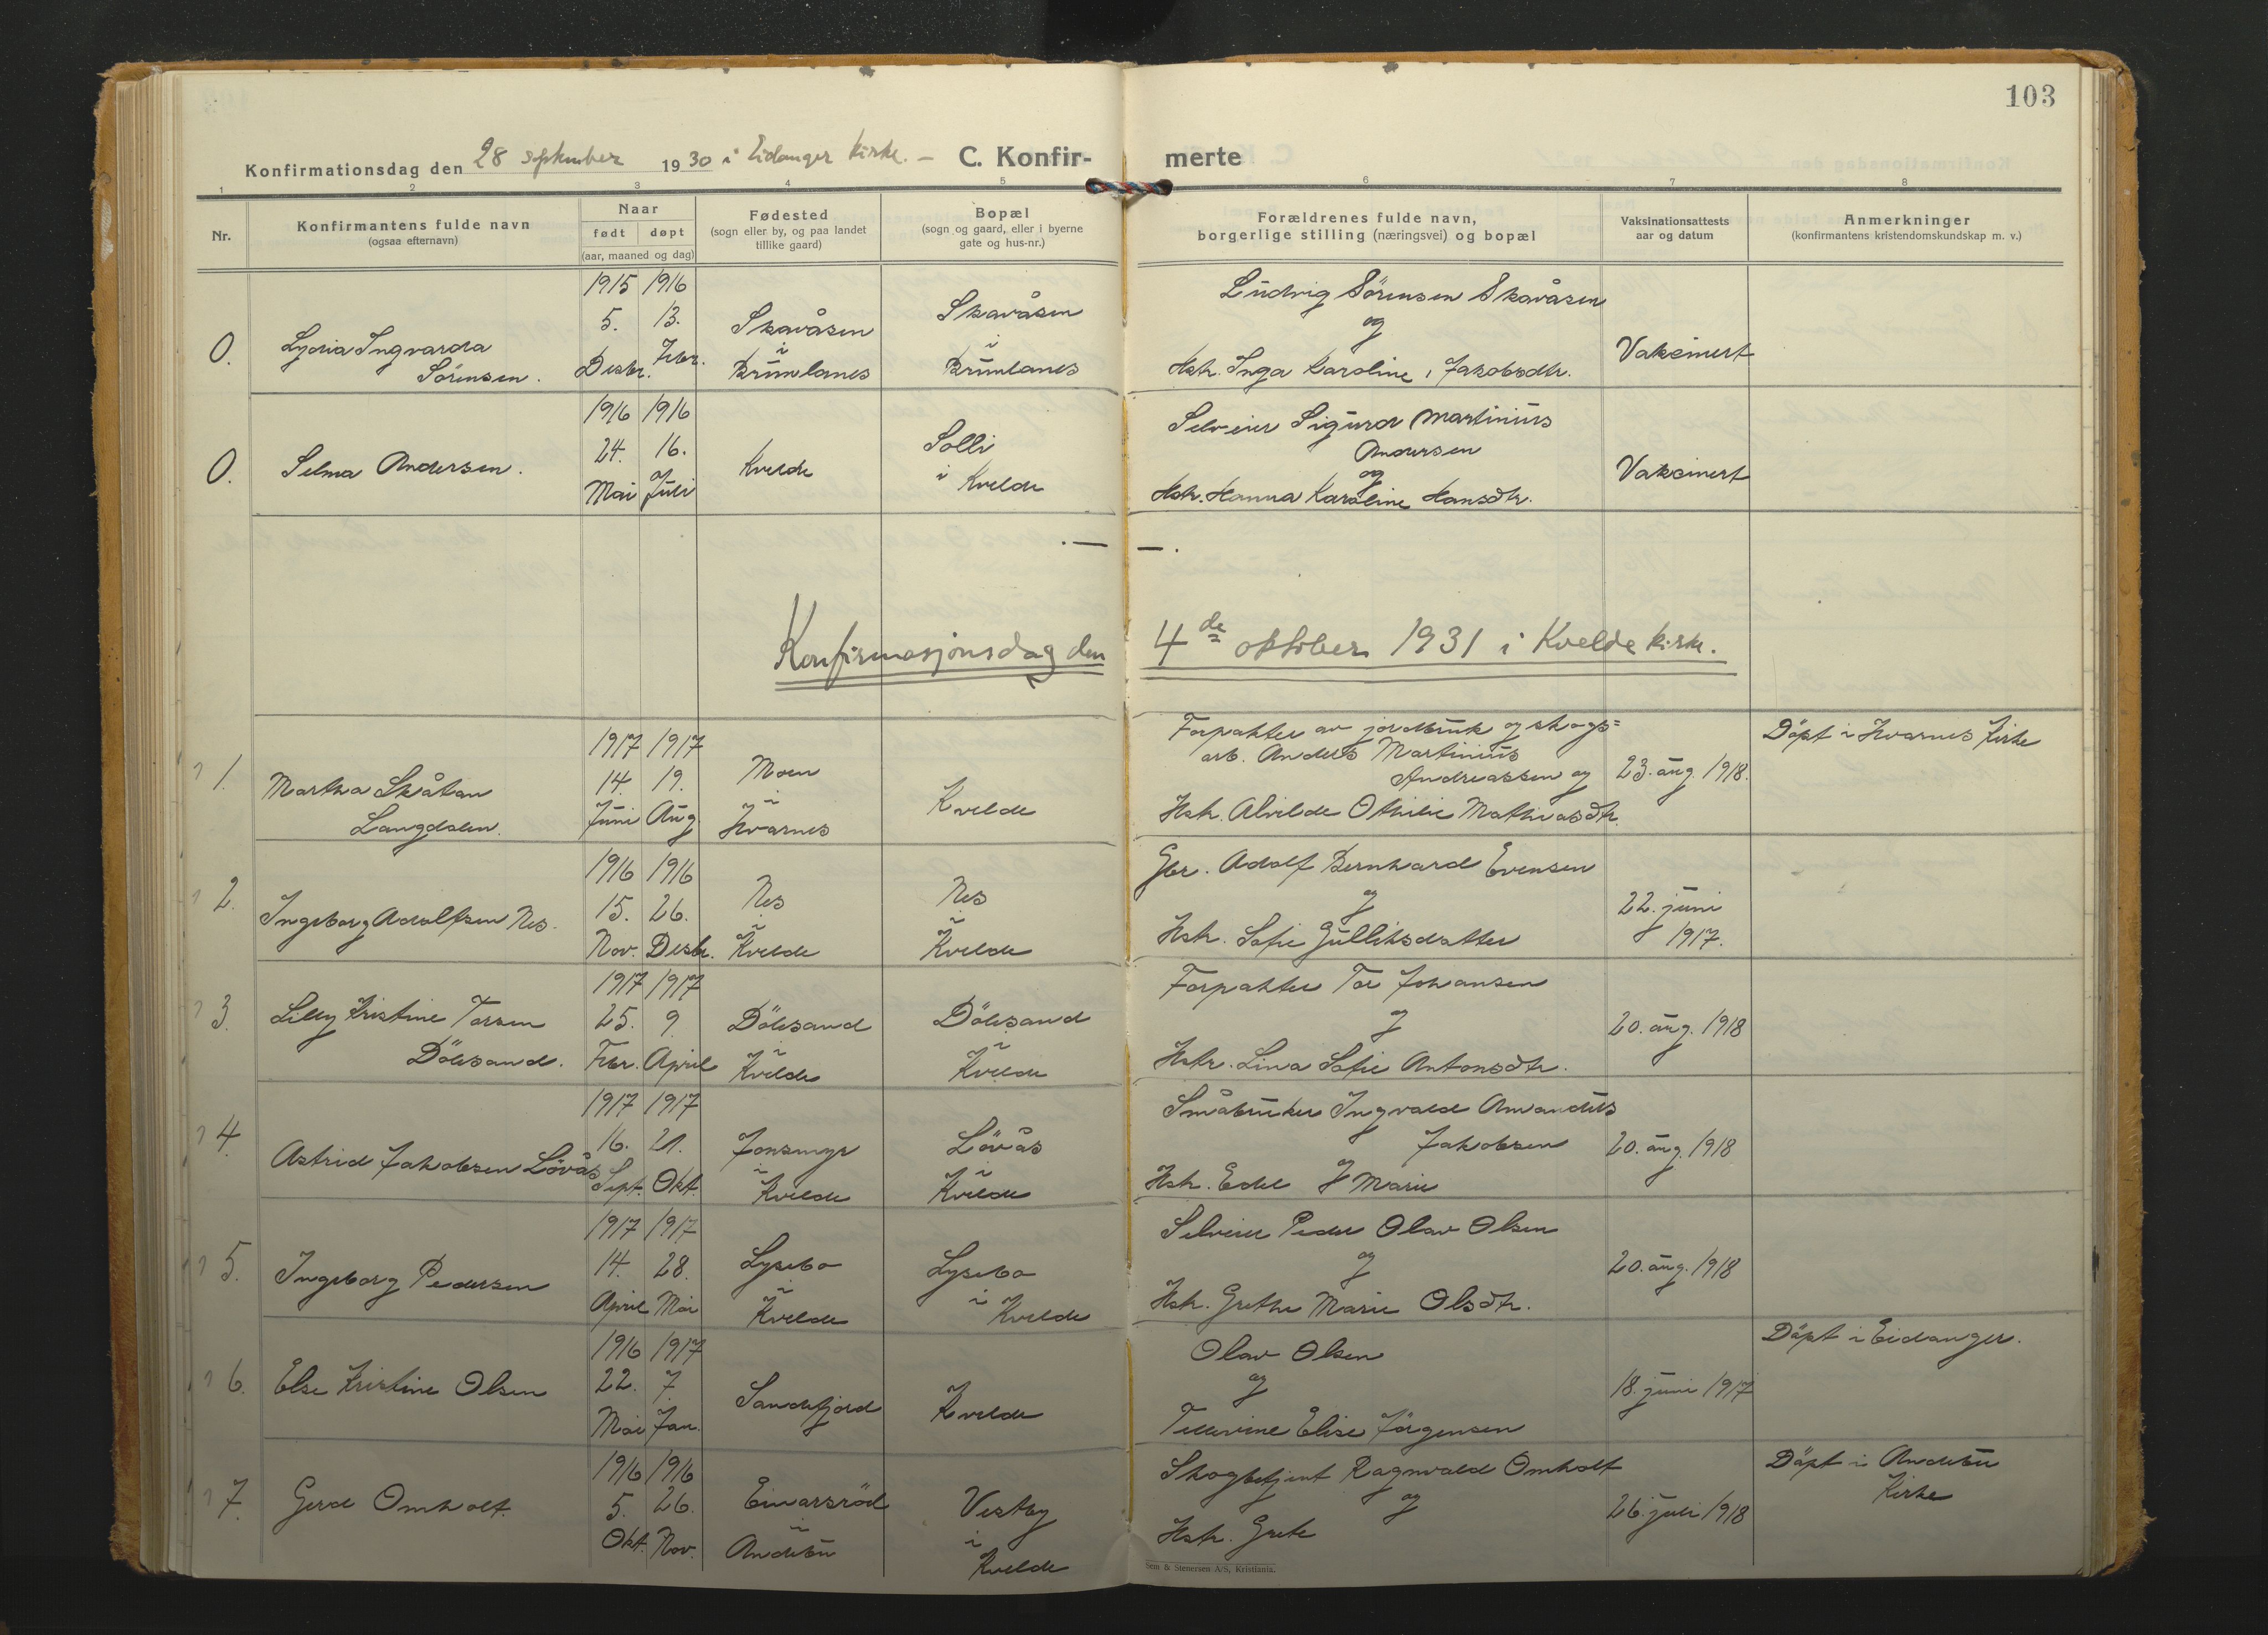 103
Konfirmationsdag den 28 september 1930 i Eidanger kirke. — C. Konfir- merte
1 2 3 4 5 6 7 8
Nr.
Konfirmantens fulde navn
(ogsaa efternavn)
Naar
født døpt
(aar, maaned og dag)
Fødested
(sogn eller by, og paa landet
tillike gaard)
Bopæl
(sogn og gaard, eller i byerne
gate og hus-nr.)
Forældrenes fulde navn,
borgerlige stilling (næringsvei) og bopæl
Vaksinationsattests
aar og datum
Anmerkninger
(konfirmantens kristendomskundskap m. v.)
0.
Lydia Ingvarda
Sörensen.
1915 1916
5. 13.
Desbr. Febr.
Skavåsen
i
Brunlanes
Skavåsen
i
Brunlanes
Ludvig Sörensen Skavåsen
og
Hstr. Inga Karoline, Jakobsdtr.
Vaksinert
0.
Selma Andersen.
1916 1916
24. 16.
Mai Juli
Kvelde
Solli
i Kvelde
Selveier Sigurd Martinius
Andersen
og
Hstr. Hanna Karoline Hansdtr.
Vaksinert
. — — .
Konfirmasjonsdag den 4de oktober 1931 i Kvelde kirke.
1.
Martha Skåtan
Langdalen.
1917 1917
14. 19.
Juni Aug
Moen
i
Hvarnes
Kvelde
Forpakter av jordbruk og skogs=
arb. Anders Martinius
Andreassen og
Hstr. Alvilde Othilie Mathiasdtr.
23. aug. 1918.
Döpt i Hvarnes Kirke
2.
Ingeborg Adolfsen Nes.
1916 1916
15. 26.
Nov. Desbr.
Nes
i
Kvelde
Nes
i
Kvelde
Gbr. Adolf Bernhard Evensen
og
Hstr. Sofie Gulliksdatter
22. juni
1917.
3.
Lilly Kristine Torsen
Dölesand.
1917 1917
25. 9.
Febr. April
Dölesand
i
Kvelde
Dölesand
i
Kvelde
Forpakter Tor Johansen
og
Hstr. Lina Sofie Antonsdtr.
20. aug. 1918
4.
Astrid Jakobsen Lövås
1917 1917
16. 21.
Sept. Okt.
Jonsmyr
i
Kvelde
Lövås
i
Kvelde
Småbruker Ingvald Amandus
Jakobsen
og
Hstr. Edel Marie
20. aug. 1918
5.
Ingeborg Pedersen
1917 1917
14. 28.
April Mai
Lysebo
i
Kvelde
Lysebo
i
Kvelde
Selveier Peder Olav Olsen
og
Hstr. Grethe Marie Olsdtr.
20. aug. 1918
6.
Else Kristine Olsen
1916 1917
22. 7.
Mai Jan.
Sandefjord
Kvelde
Olav Olsen
og
Elise Jörgensen
18. juni 1917
Döpt i Eidanger.
7.
Gerd Omholt.
1916 1916
5. 26.
Okt. Nov.
Einarsröd
i
Andebu
Vestby
i
Kvelde
Skogbetjent Ragnvald Omholt
og
Hstr. Grete
26. juli 1918
Döpt i Andebu
Kirke
Sem & Stenersen A/S, Kristiania.